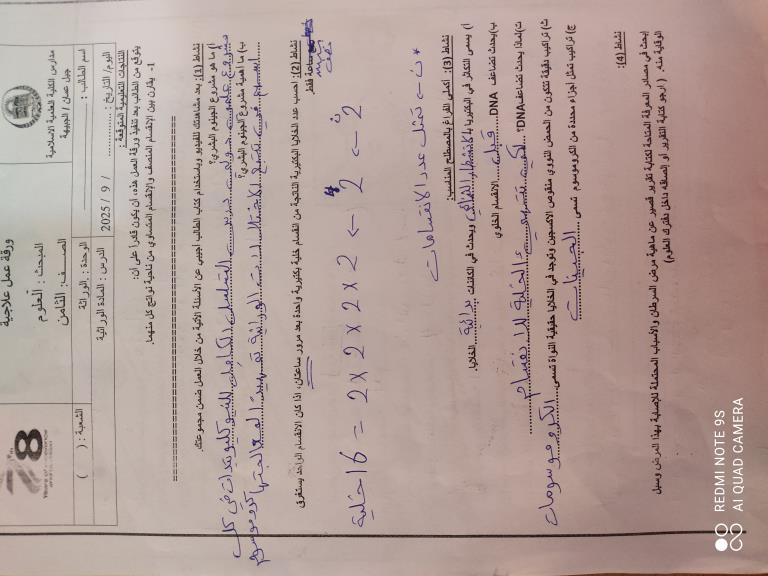 ورقة عمل علاجية
مدارس الكلية العلمية الإسلامية
جبل عمان / الجبيهة
المبحث : العلوم
الصف : الثامن
اسم الطالب :
الشعبة : ( )
اليوم/ التاريخ : / 9 / 2025
الوحدة : الوراثة
الدرس : المادة الوراثية
النتاجات التعليمية المتوقعة :
يتوقع من الطالب بعد تنفيذ ورقة العمل هذه، أن يكون قادرا على أن:
1- يقارن بين الإنقسام المنصف والإنقسام المتساوي من ناحية نواتج كل منهما.
نشاط (1): بعد مشاهدتك للفيديو وباستخدام كتاب الطالب أجيبي عن الأسئلة الآتية من خلال العمل ضمن مجموعتك.
أ) ما هو مشروع الجينوم البشري؟
مشروع علمي دولي درس التسلسل الكامل للنيوكليوتيدات في كل كروموسوم
ب) ما أهمية مشروع الجينوم البشري؟
نشاط (2): احسب عدد الخلايا البكتيرية الناتجة من انقسام خلية بكتيرية واحدة بعد مرور ساعتان، اذا كان الانقسام الواحد يستغرق
ساعة فقط
نصف
2ⁿ → 2⁴ → 2 × 2 × 2 × 2 = 16 خلية
* ن ← تمثل عدد الانقسامات
نشاط (3): أكملي الفراغ بالمصطلح المناسب:
أ) يسمى التكاثر في البكتيريا بالانشطار الثنائي ويحدث في الكائنات بدائية الخلايا.
ب) يحدث تضاعف DNA قبل الانقسام الخلوي
ت) لماذا يحدث تضاعف DNA؟ لكي تتهيىء الخلية للانقسام
ث) تراكيب دقيقة تتكون من الحمض النووي منقوص الاكسجين وتوجد في الخلايا حقيقية النواة تسمى الكروموسومات
ج) تراكيب تمثل اجزاء محددة من الكروموسوم تسمى الجينات
نشاط (4):
إبحث في مصادر المعرفة المتاحة لكتابة تقرير قصير عن ماهية مرض السرطان والأسباب المحتملة للإصابة بهذا المرض وسبل
الوقاية منه. ( ارجو كتابة التقرير أو إلصاقه داخل دفترك العلوم)
REDMI NOTE 9S
AI QUAD CAMERA